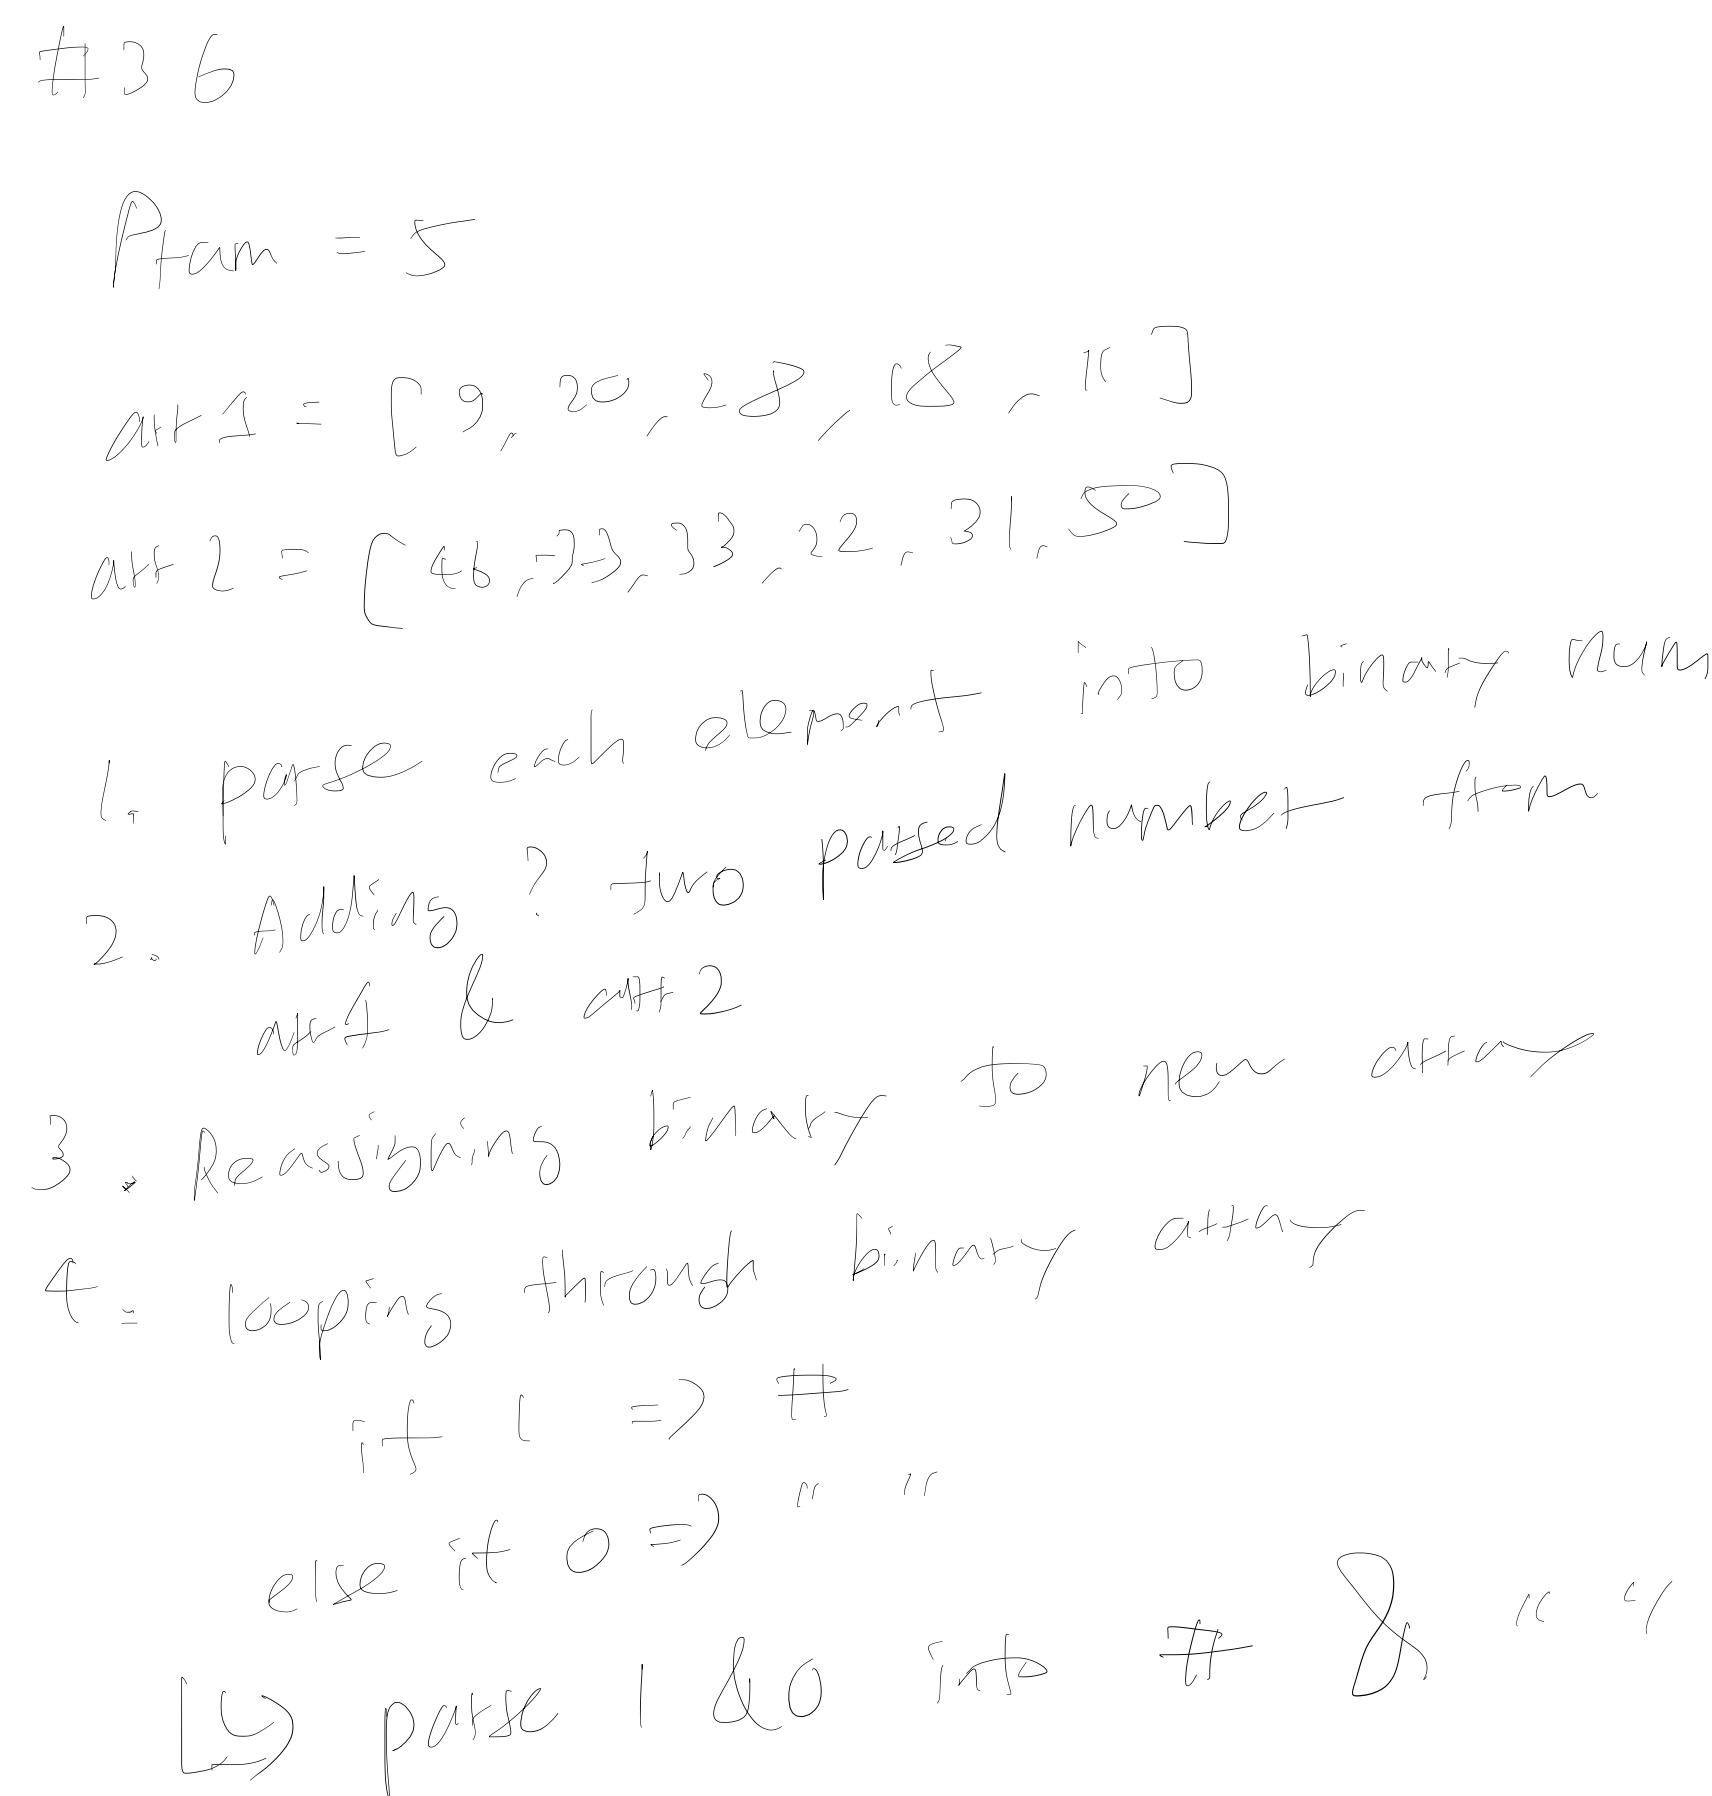 #36
Pram = 5
arr1 = [9, 20, 28, 18, 11]
arr2 = [46, 33, 33, 22, 31, 50]
1. parse each element into binary num
2. Adding? two parsed number from
arr1 & arr2
3. Reassigning binary to new array
4. looping through binary array
if 1 => #
else if 0 => " "
↳ parse 1 & 0 into # & " "